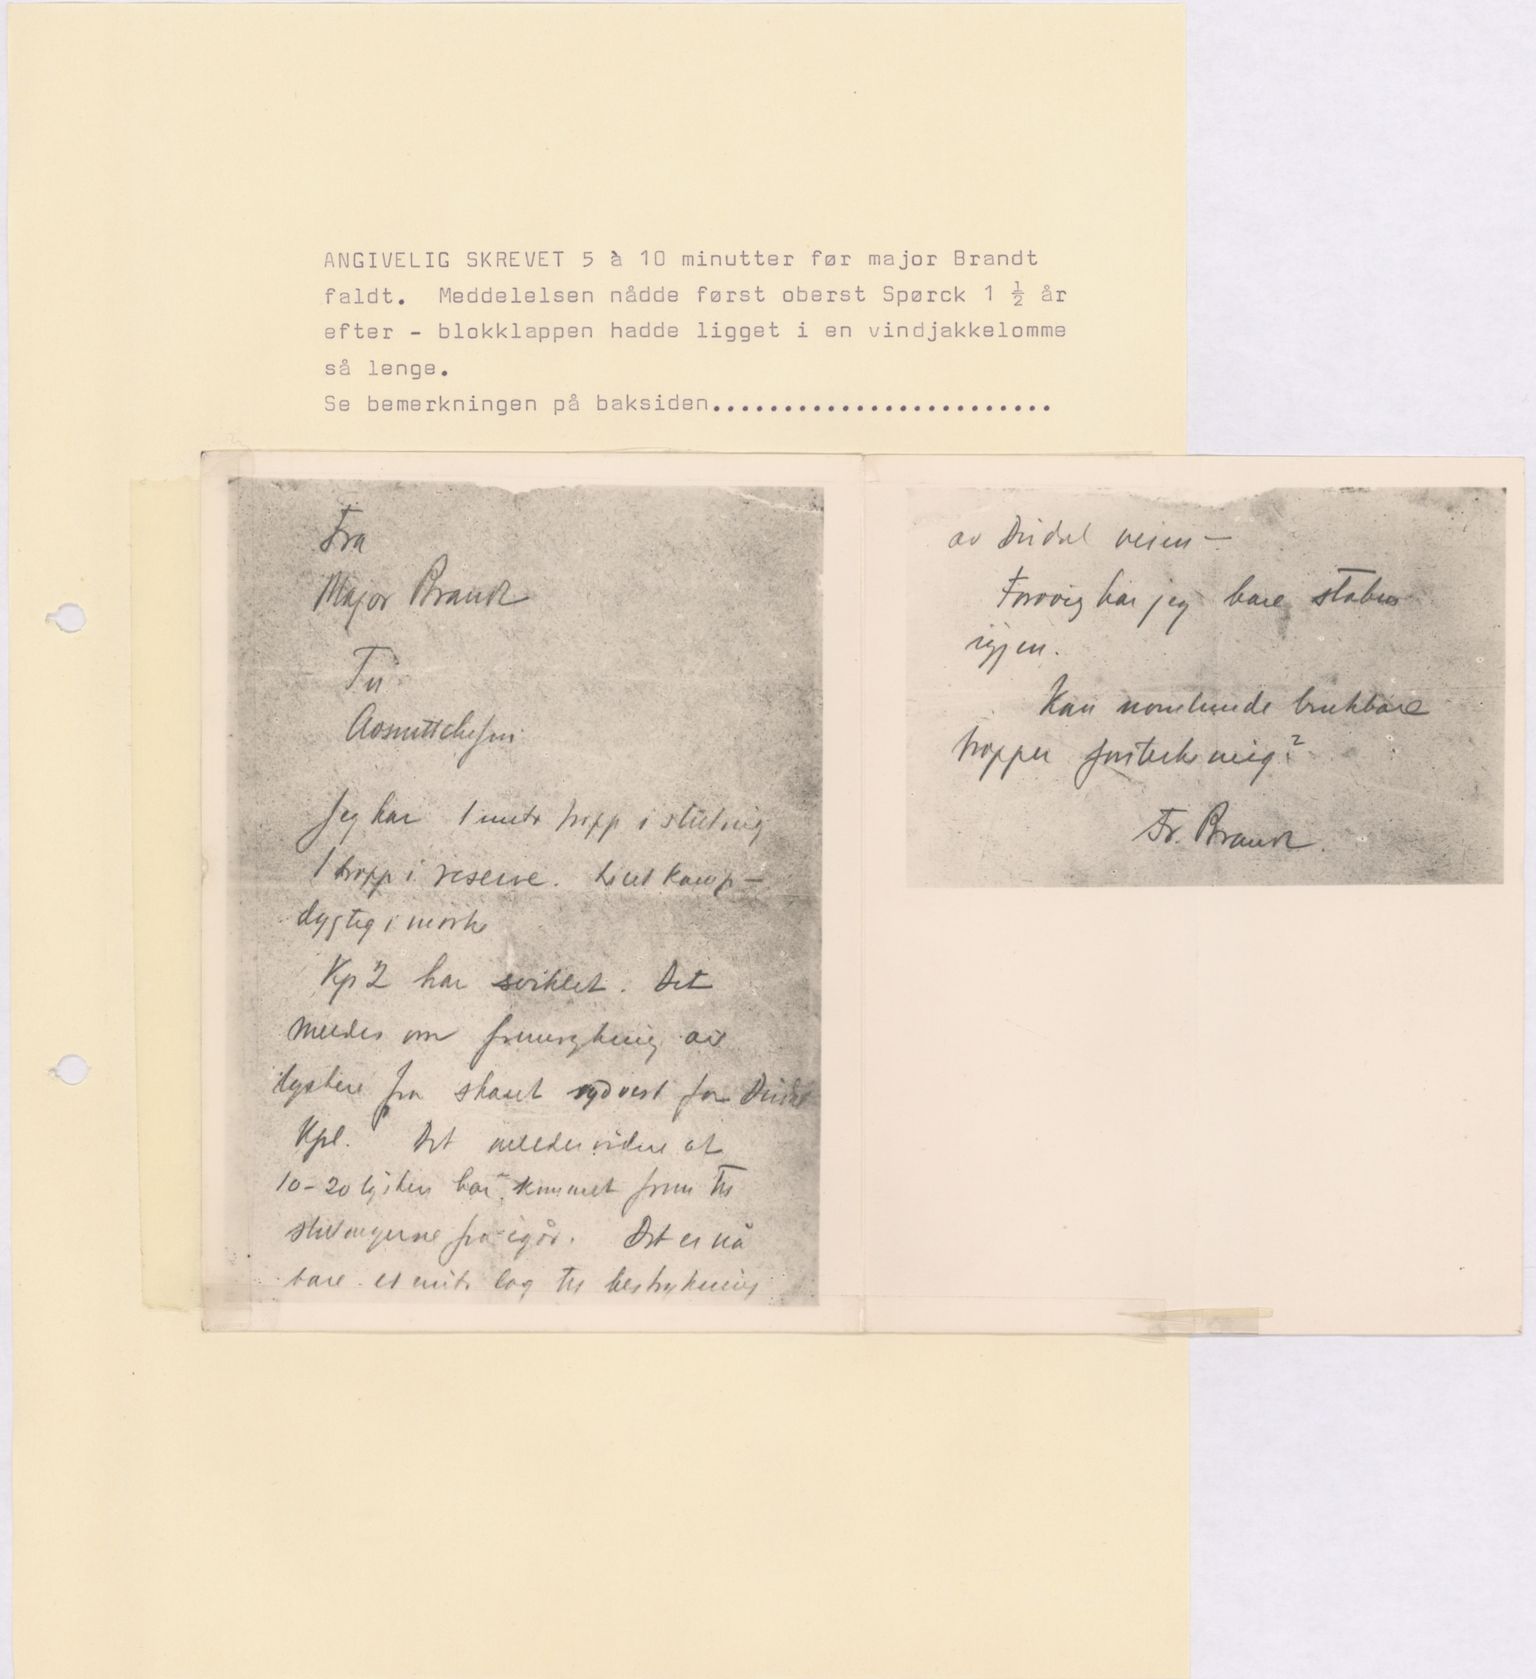 ANGIVELIG SKREVET 5 à 10 minutter før major Brandt
faldt. Meddelelsen nådde først oberst Spørck 1 ½ år
efter - blokklappen hadde ligget i en vindjakkelomme
så lenge.
Se bemerkningen på baksiden........................
Fra
Major Brandt
Til
Avsnittchefen
Jeg har 1 mitr tropp i stilling
1 tropp i reserve. Litet kamp-
dygtig i mørke
Kp 2 har sviktet. Det
meldes om fremrykning av
tyskere fra skaret sydvest for Dirdal
Kpl. Det meldes videre at
10-20 tyskere har kommet frem til
stillingerne fra igår. Det er nå
bare et mitr lag til bestrykning
av Dirdal veien —
Forøvrig har jeg bare staben
igjen.
Kan noenlunde brukbare
tropper forsterke meig?
Fr. Brandt.